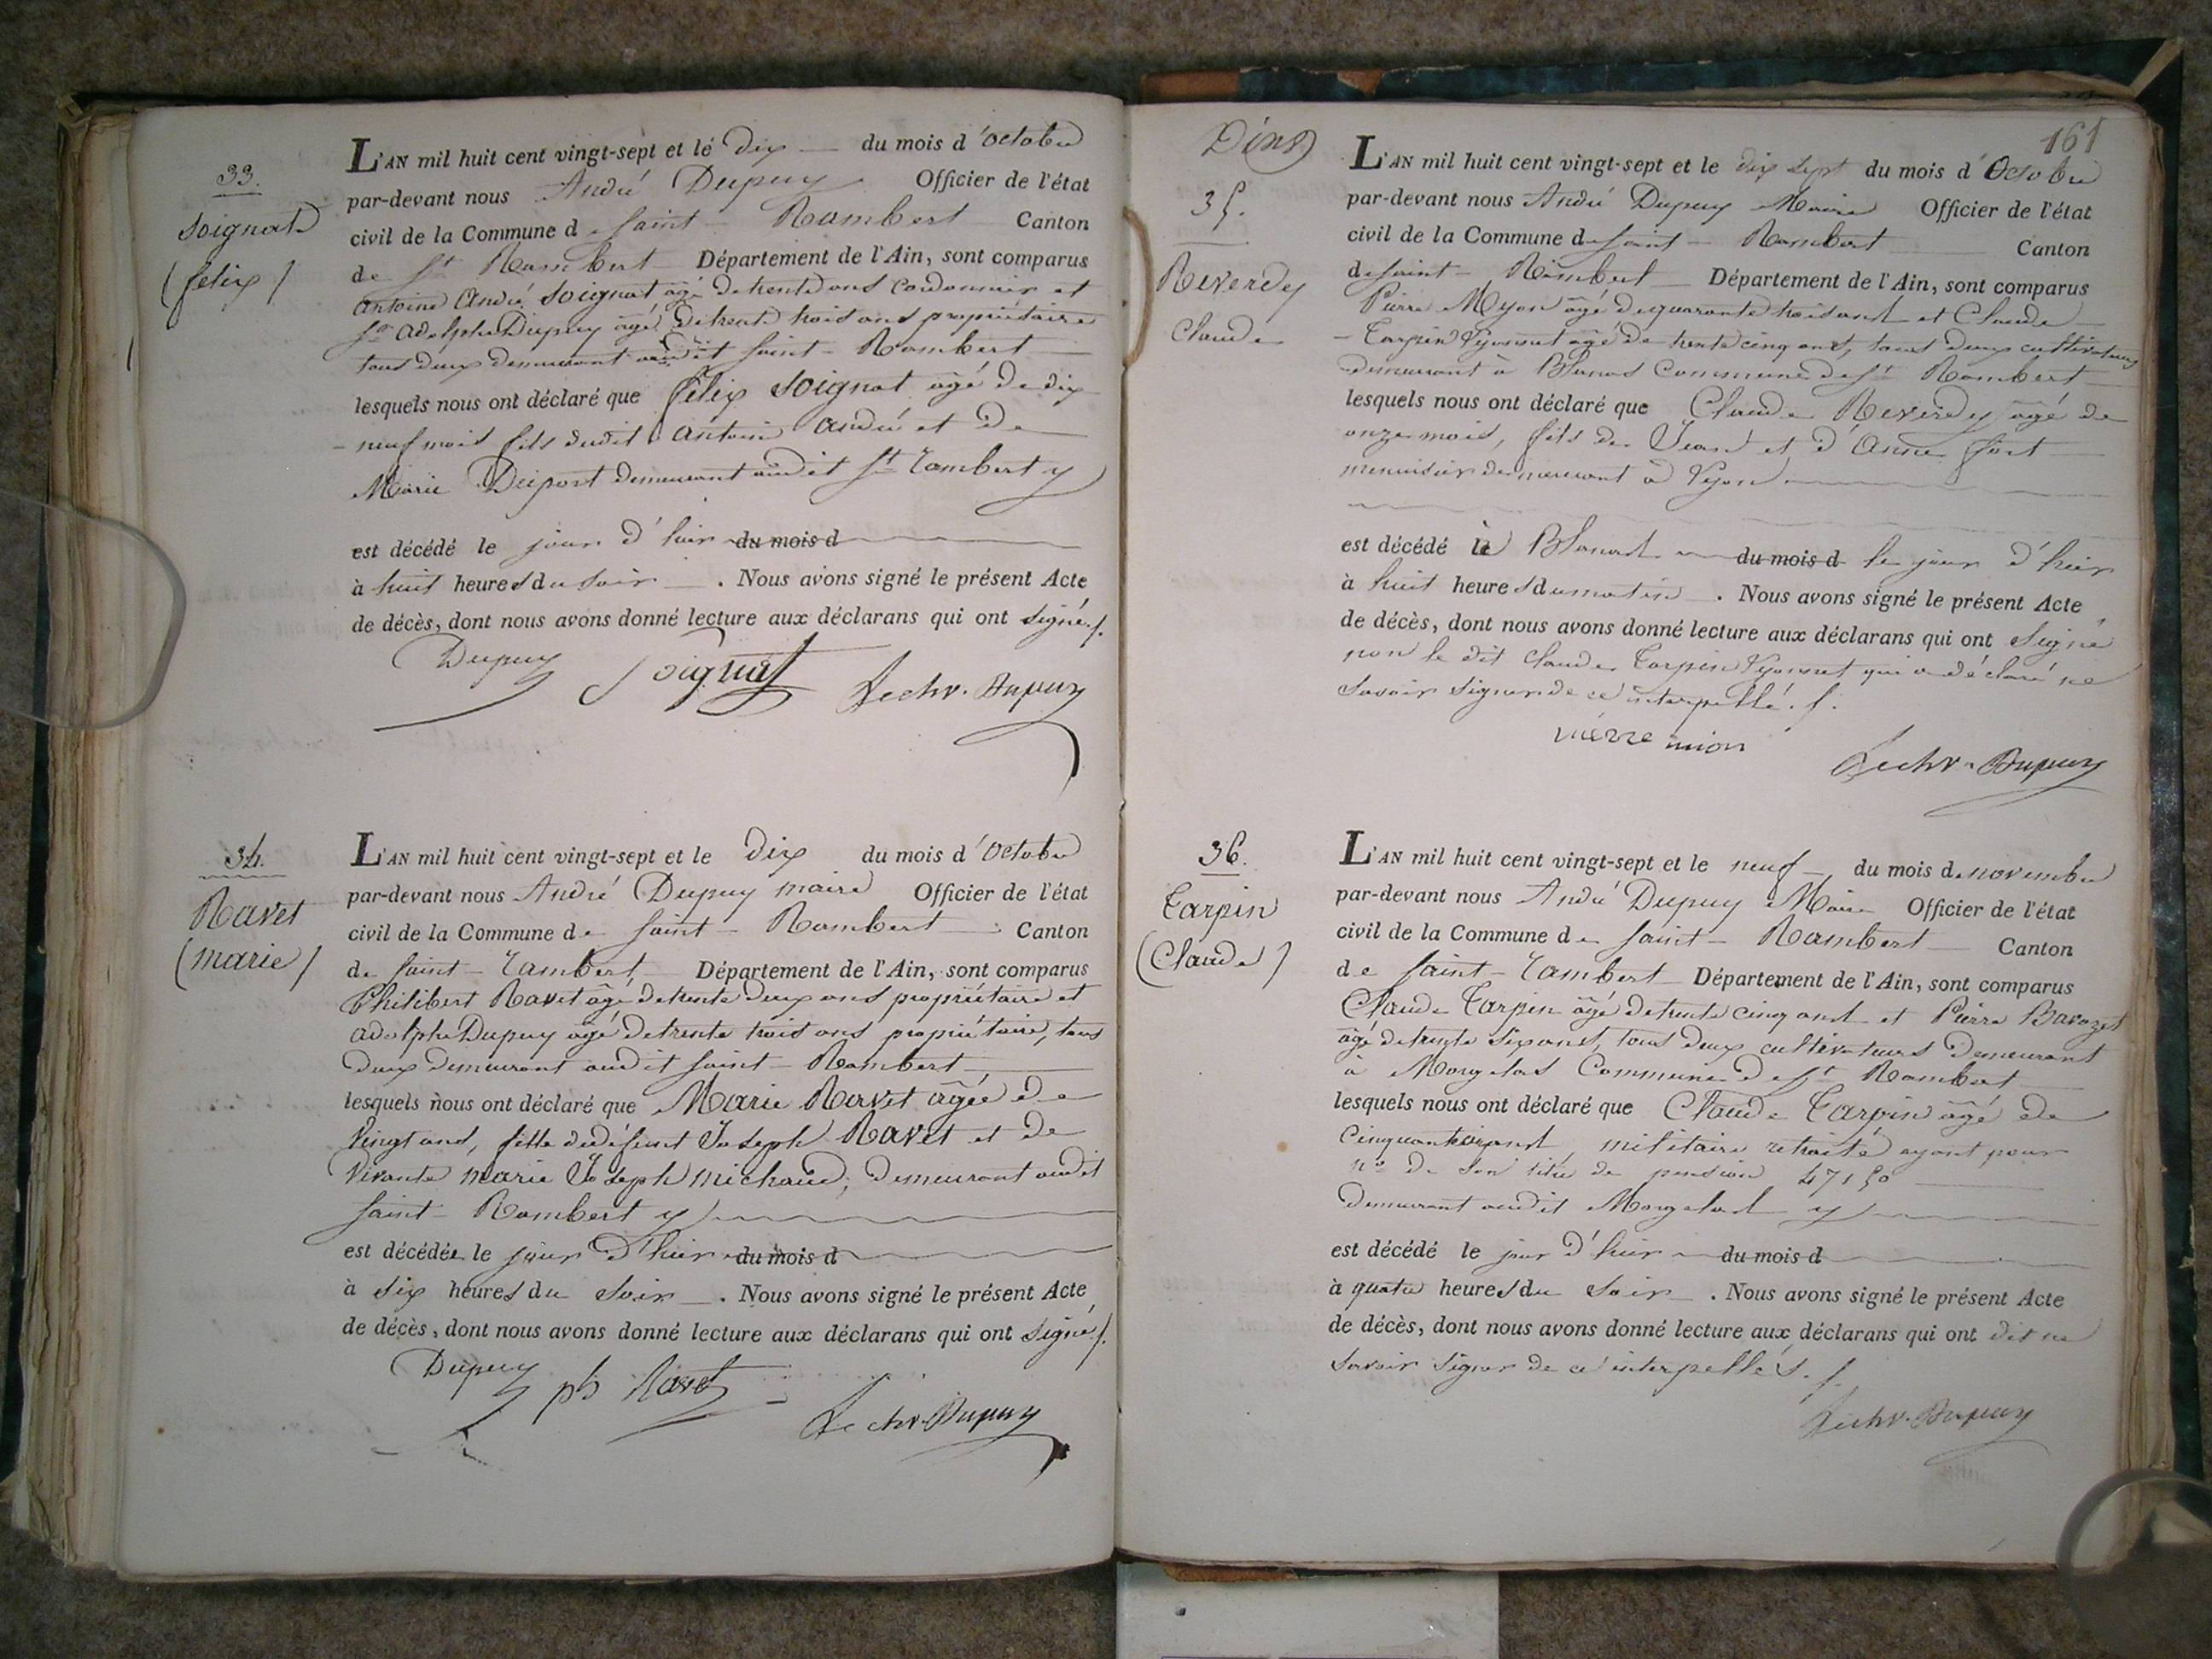 33.
Soignat
(felix)
L'AN mil huit cent vingt-sept et le dix du mois d'octobre
par-devant nous André Dupuy Officier de l'état
civil de la Commune de Saint-Rambert Canton
de St Rambert Département de l'Ain, sont comparus
antoine André Soignat âgé de trente ans cordonnier et
adolphe Dupuy âgé de trente trois ans propriétaire
tous deux demeurant audit Saint-Rambert
lesquels nous ont déclaré que félix Soignat âgé de dix
-neuf mois fils dudit antoine andré et de
Marie Duport demeurant audit St Rambert
est décédé le jour d'hier du mois d
à huit heures du soir. Nous avons signé le présent Acte
de décès, dont nous avons donné lecture aux déclarans qui ont signé./.
Dupuy Soignat Le chr. Dupuy
34.
Ravet
(marie)
L'AN mil huit cent vingt-sept et le dix du mois d'octobre
par-devant nous André Dupuy maire Officier de l'état
civil de la Commune de Saint-Rambert Canton
de Saint-Rambert Département de l'Ain, sont comparus
Philibert Ravet âgé de trente deux ans propriétaire et
adolphe Dupuy âgé de trente trois ans propriétaire, tous
deux demeurant audit Saint-Rambert
lesquels nous ont déclaré que Marie Ravet âgée de
vingt ans, fille du défunt Joseph Ravet et de
vivante marie Joseph michaud, demeurant audit
Saint-Rambert
est décédée le jour d'hier du mois d
à six heures du soir. Nous avons signé le présent Acte
de décès, dont nous avons donné lecture aux déclarans qui ont signé/.
Dupuy ph Ravet Le chr. Dupuy
161
35.
Reverdy
Claude
L'AN mil huit cent vingt-sept et le dix sept du mois d'Octobre
par-devant nous André Dupuy Maire Officier de l'état
civil de la Commune de Saint-Rambert Canton
de Saint-Rambert Département de l'Ain, sont comparus
Pierre Myon âgé de quarante trois ans et Claude
Tarpin âgé de trente cinq ans, tous deux cultivateurs
demeurant à Blanas Commune de St Rambert
lesquels nous ont déclaré que Claude Reverdy âgé de
onze mois, fils de Jean et d'Anne fort
menuisier demeurant à Lyon
est décédé à Blanas du mois d le jour d'hier
à huit heures du matin. Nous avons signé le présent Acte
de décès, dont nous avons donné lecture aux déclarans qui ont signé
non le dit claude Tarpin qui a déclaré ne
savoir signer de ce interpellé./.
mion
Le chr. Dupuy
36.
Tarpin
(Claude)
L'AN mil huit cent vingt-sept et le neuf du mois de novembre
par-devant nous André Dupuy Maire Officier de l'état
civil de la Commune de Saint-Rambert Canton
de Saint-Rambert Département de l'Ain, sont comparus
Claude Tarpin âgé de trente cinq ans et Pierre Bavozet
âgé de trente six ans, tous deux cultivateurs demeurant
à Morgelas Commune de St Rambert
lesquels nous ont déclaré que Claude Tarpin âgé de
militaire retraité ayant pour
no de son titre de pension 47150
demeurant audit Morgelas
est décédé le jour d'hier du mois d
à quatre heures du soir. Nous avons signé le présent Acte
de décès, dont nous avons donné lecture aux déclarans qui ont dit ne
savoir signer de ce interpellés./.
Le chr. Dupuy